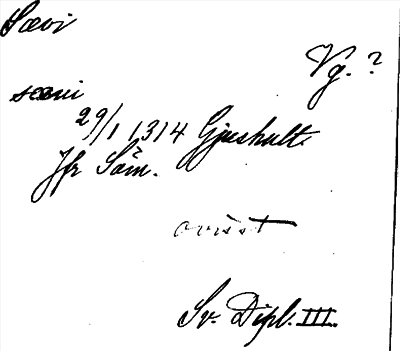 Sævi
Vg. ?
sæui
29/1 1314 Gjushult.
Jfr Säm.
ovisst
Sv. Dipl. III.